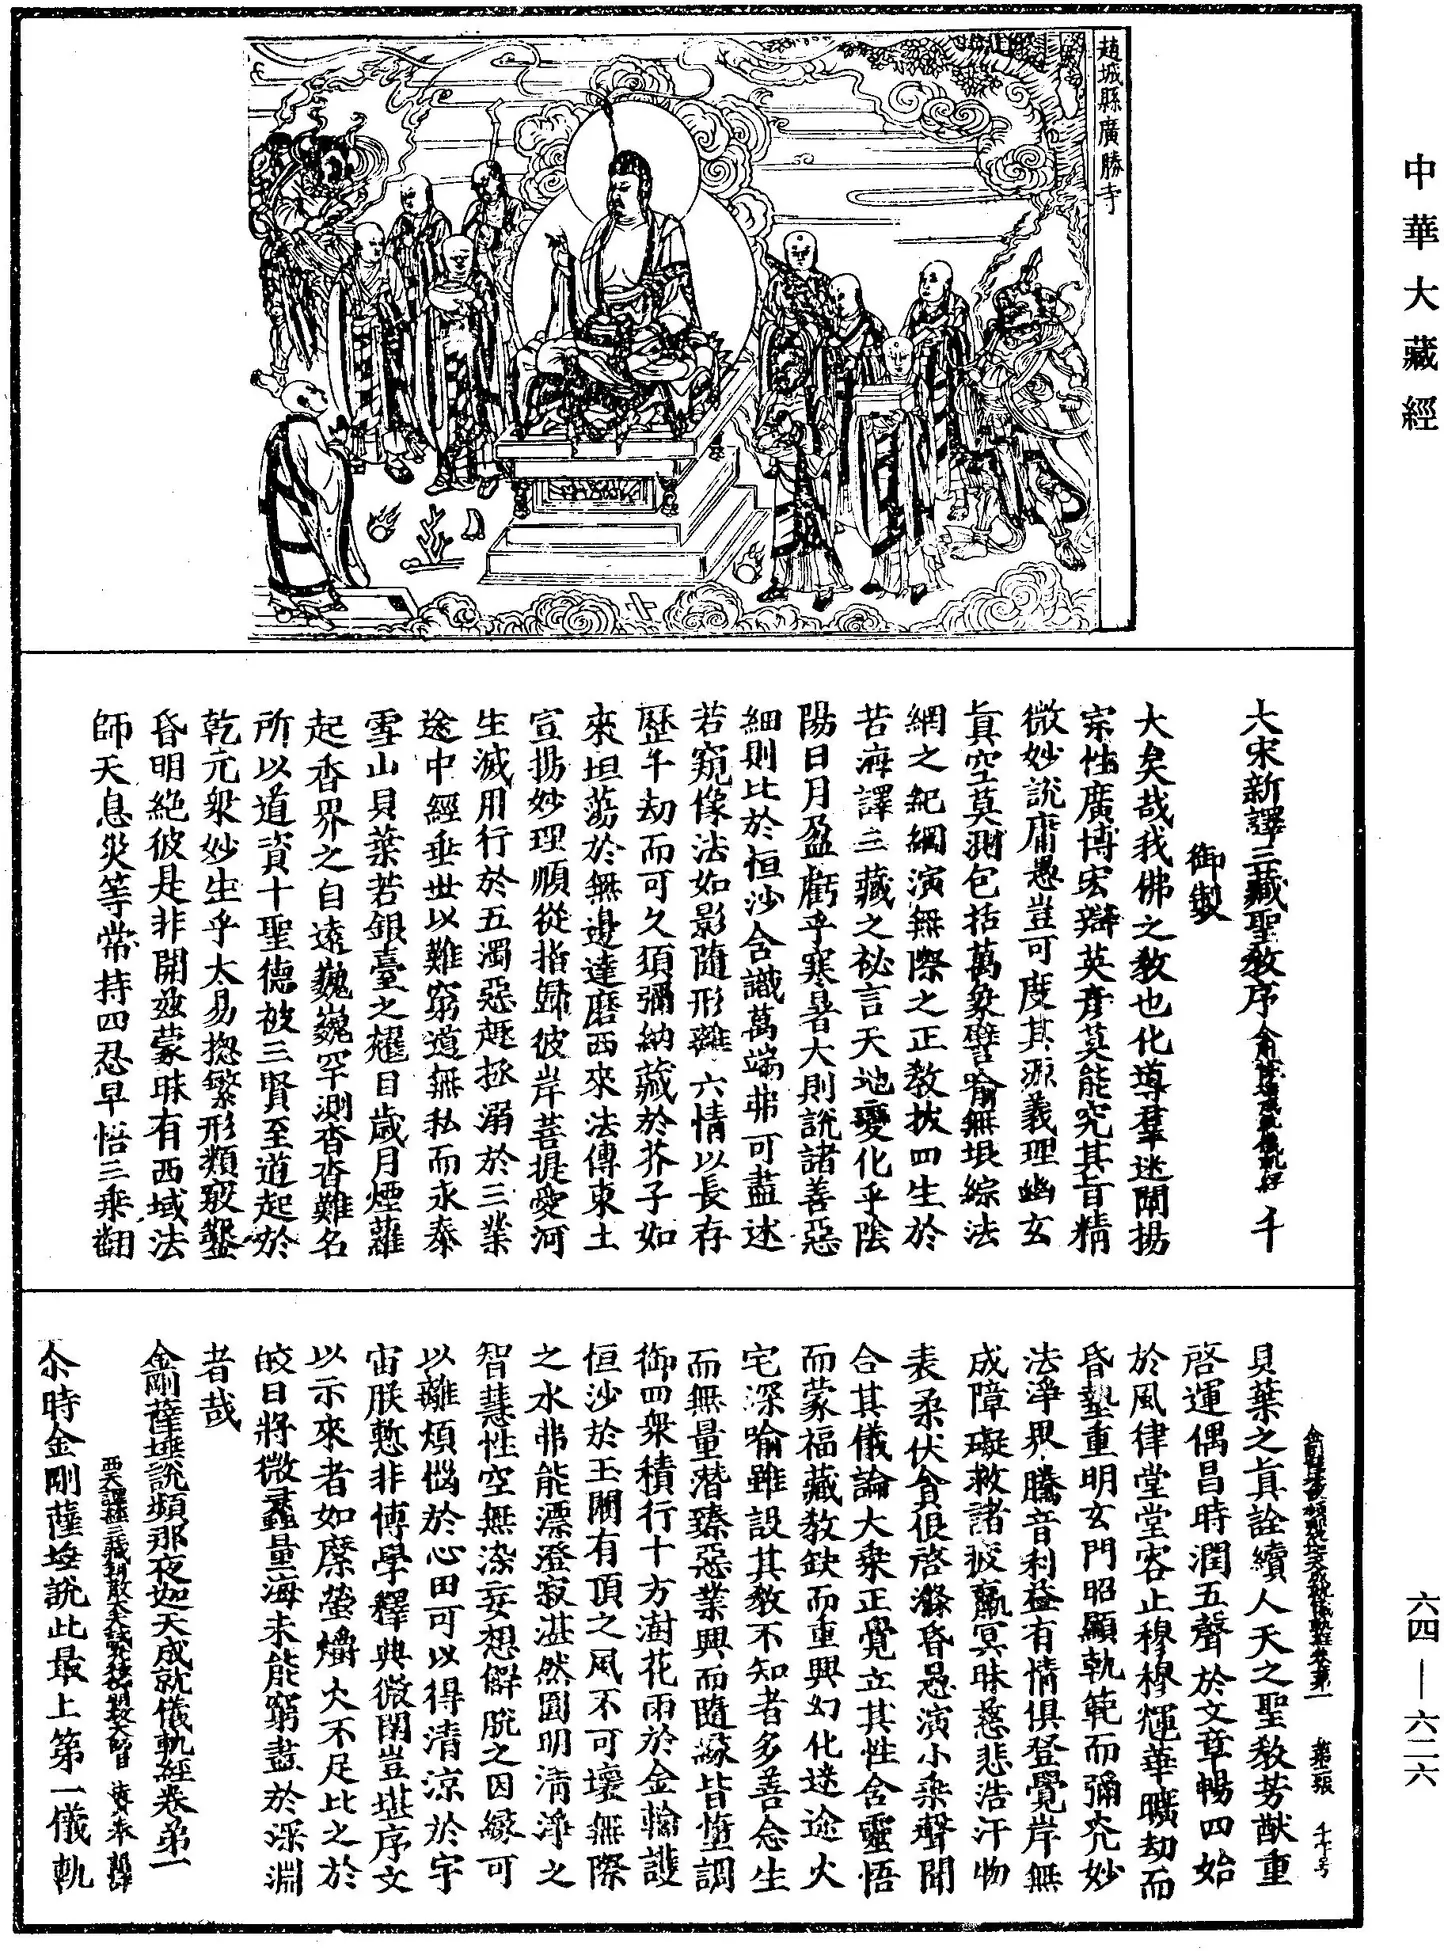 中華大藏經
趙城縣廣勝寺
大宋新譯三藏聖教序 千
御製
大矣哉我佛之教也化導羣迷闡揚
宗性廣博宏辯英彥莫能究其旨精
微妙說庸愚豈可度其源義理幽玄
真空莫測包括萬象譬喻無垠綜法
網之紀綱演無際之正教拔四生於
苦海譯三藏之祕言天地變化乎陰
陽日月盈虧乎寒暑大則說諸善惡
細則比於恒沙含識萬端弗可盡述
若窺像法如影隨形離六情以長存
歷千劫而可久須彌納藏於芥子如
來坦蕩於無邊達磨西來法傳東土
宣揚妙理順從指歸彼岸菩提愛河
生滅用行於五濁惡趣拯溺於三業
途中經垂世以難窮道無私而永泰
雪山貝葉若銀臺之耀目歲月煙蘿
起香界之自遠巍巍罕測杳杳難名
所以道資十聖德被三賢至道起於
乾元衆妙生乎太易揔繁形類竅鑿
昏明絕彼是非開茲蒙昧有西域法
師天息災等常持四忍早悟三乘翻
貝葉之真詮續人天之聖教芳猷重
啓運偶昌時潤五聲於文章暢四始
於風律堂堂容止穆穆輝華曠劫而
昏墊重明玄門昭顯軌範而彌光妙
法淨界騰音利益有情俱登覺岸無
成障礙救諸疲羸冥昧慈悲浩汗物
表柔伏貪很啓滌昏愚演小乘聲聞
合其儀論大乘正覺立其性含靈悟
而蒙福藏教缺而重興幻化迷途火
宅深喻雖設其教不知者多善念生
而無量潛臻惡業興而隨緣皆墮調
御四衆積行十方澍花雨於金輪護
恒沙於玉闕有頂之風不可壞無際
之水弗能漂澄寂湛然圓明清淨之
智慧性空無染妄想解脫之因緣可
以離煩惱於心田可以得清涼於宇
宙朕慙非博學釋典微閑豈堪序文
以示來者如縻螢爝火不足比之於
皎日將微蠡量海未能窮盡於深淵
者哉
金剛薩埵說頻那夜迦天成就儀軌經卷第一
西天譯經三藏朝散大夫試光祿卿明教大師臣 法賢奉 詔譯
尒時金剛薩埵說此最上第一儀軌
六四—六二六